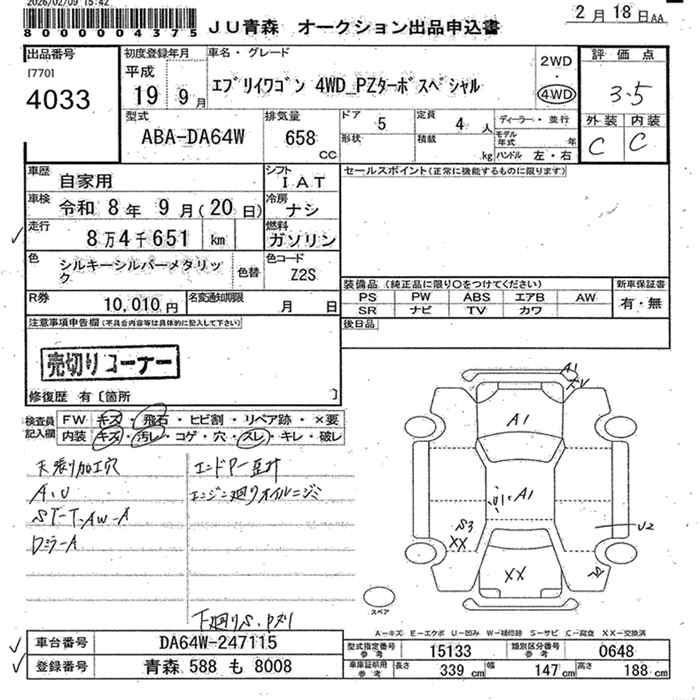 2026/02/09 15:42
8000004375
JU青森 オークション出品申込書
2月18日AA
出品番号
[770]
4033
初度登録年月
平成
19 9月
車名・グレード
エブリイワゴン 4WD_PZターボスペシャル
2WD
・
4WD
評価点
3.5
外装 内装
C C
型式
ABA-DA64W
排気量
658
CC
ドア 5
形状
定員 4 人
積載 kg
ディーラー・並行
モデル年式 年
ハンドル 左・右
車歴
自家用
シフト
IAT
車検
令和 8年 9月(20日)
冷房
ナシ
走行
8万4千651 km
燃料
ガソリン
色
シルキーシルバーメタリック
色替
色コード
Z2S
R券
10,010円
名変通知期限
月 日
セールスポイント(正常に機能するものに限ります)
装備品(純正品に限り○をつけてください)
PS PW ABS エアB AW
SR ナビ TV カワ
新車保証書
有・無
後日品
注意事項申告欄(不具合内容等は具体的に記入して下さい)
売切りコーナー
修復歴 有〔箇所 〕
検査員記入欄
FW キズ・飛石・ヒビ割・リペア跡・×要
内装 キズ・汚レ・コゲ・穴・スレ・キレ・破レ
天張り加工穴
A.U
ST-T.AW-A
Dミラ-A
エンジン廻りオイルニジミ
下廻りS.
A1
A1
A1
S3
XX
XX
U2
スペア
A-キズ E-エクボ U-凹み W-補修跡 S-サビ C-腐食 XX-交換済
車台番号
DA64W-247115
登録番号
青森 588 も 8008
型式指定番号
参考
15133
類別区分番号
参考
0648
車庫証明用
参考
長さ
339 cm
幅
147 cm
高さ
188 cm